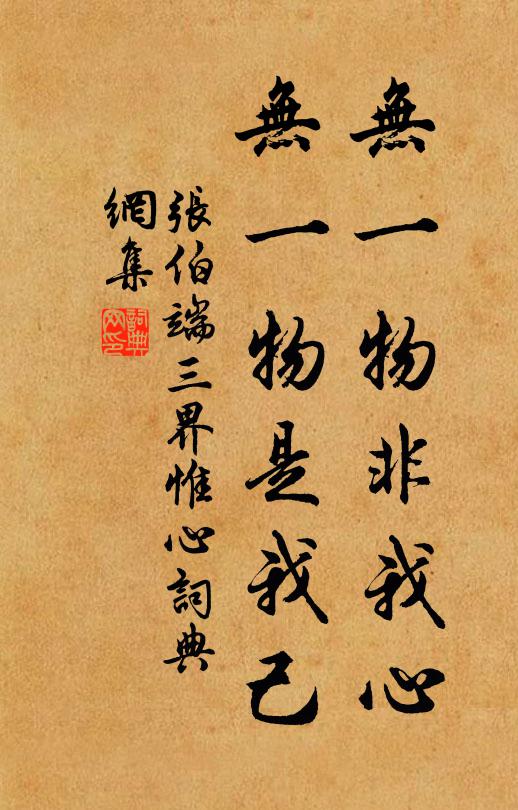 無一物非我心
無一物是我己
張伯端三界惟心詞典
網集
詞典